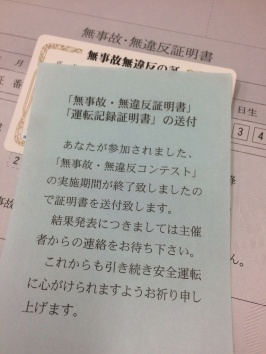 無事故・無違反証明書
無事故無違反の証
「無事故・無違反証明書」
「運転記録証明書」の送付
あなたが参加されました、
「無事故・無違反コンテスト」
の実施期間が終了致しましたの
で証明書を送付致します。
結果発表につきましては主催
者からの連絡をお待ち下さい。
これからも引き続き安全運転
に心がけられますようお祈り申し
上げます。
月
日生
番
3 4